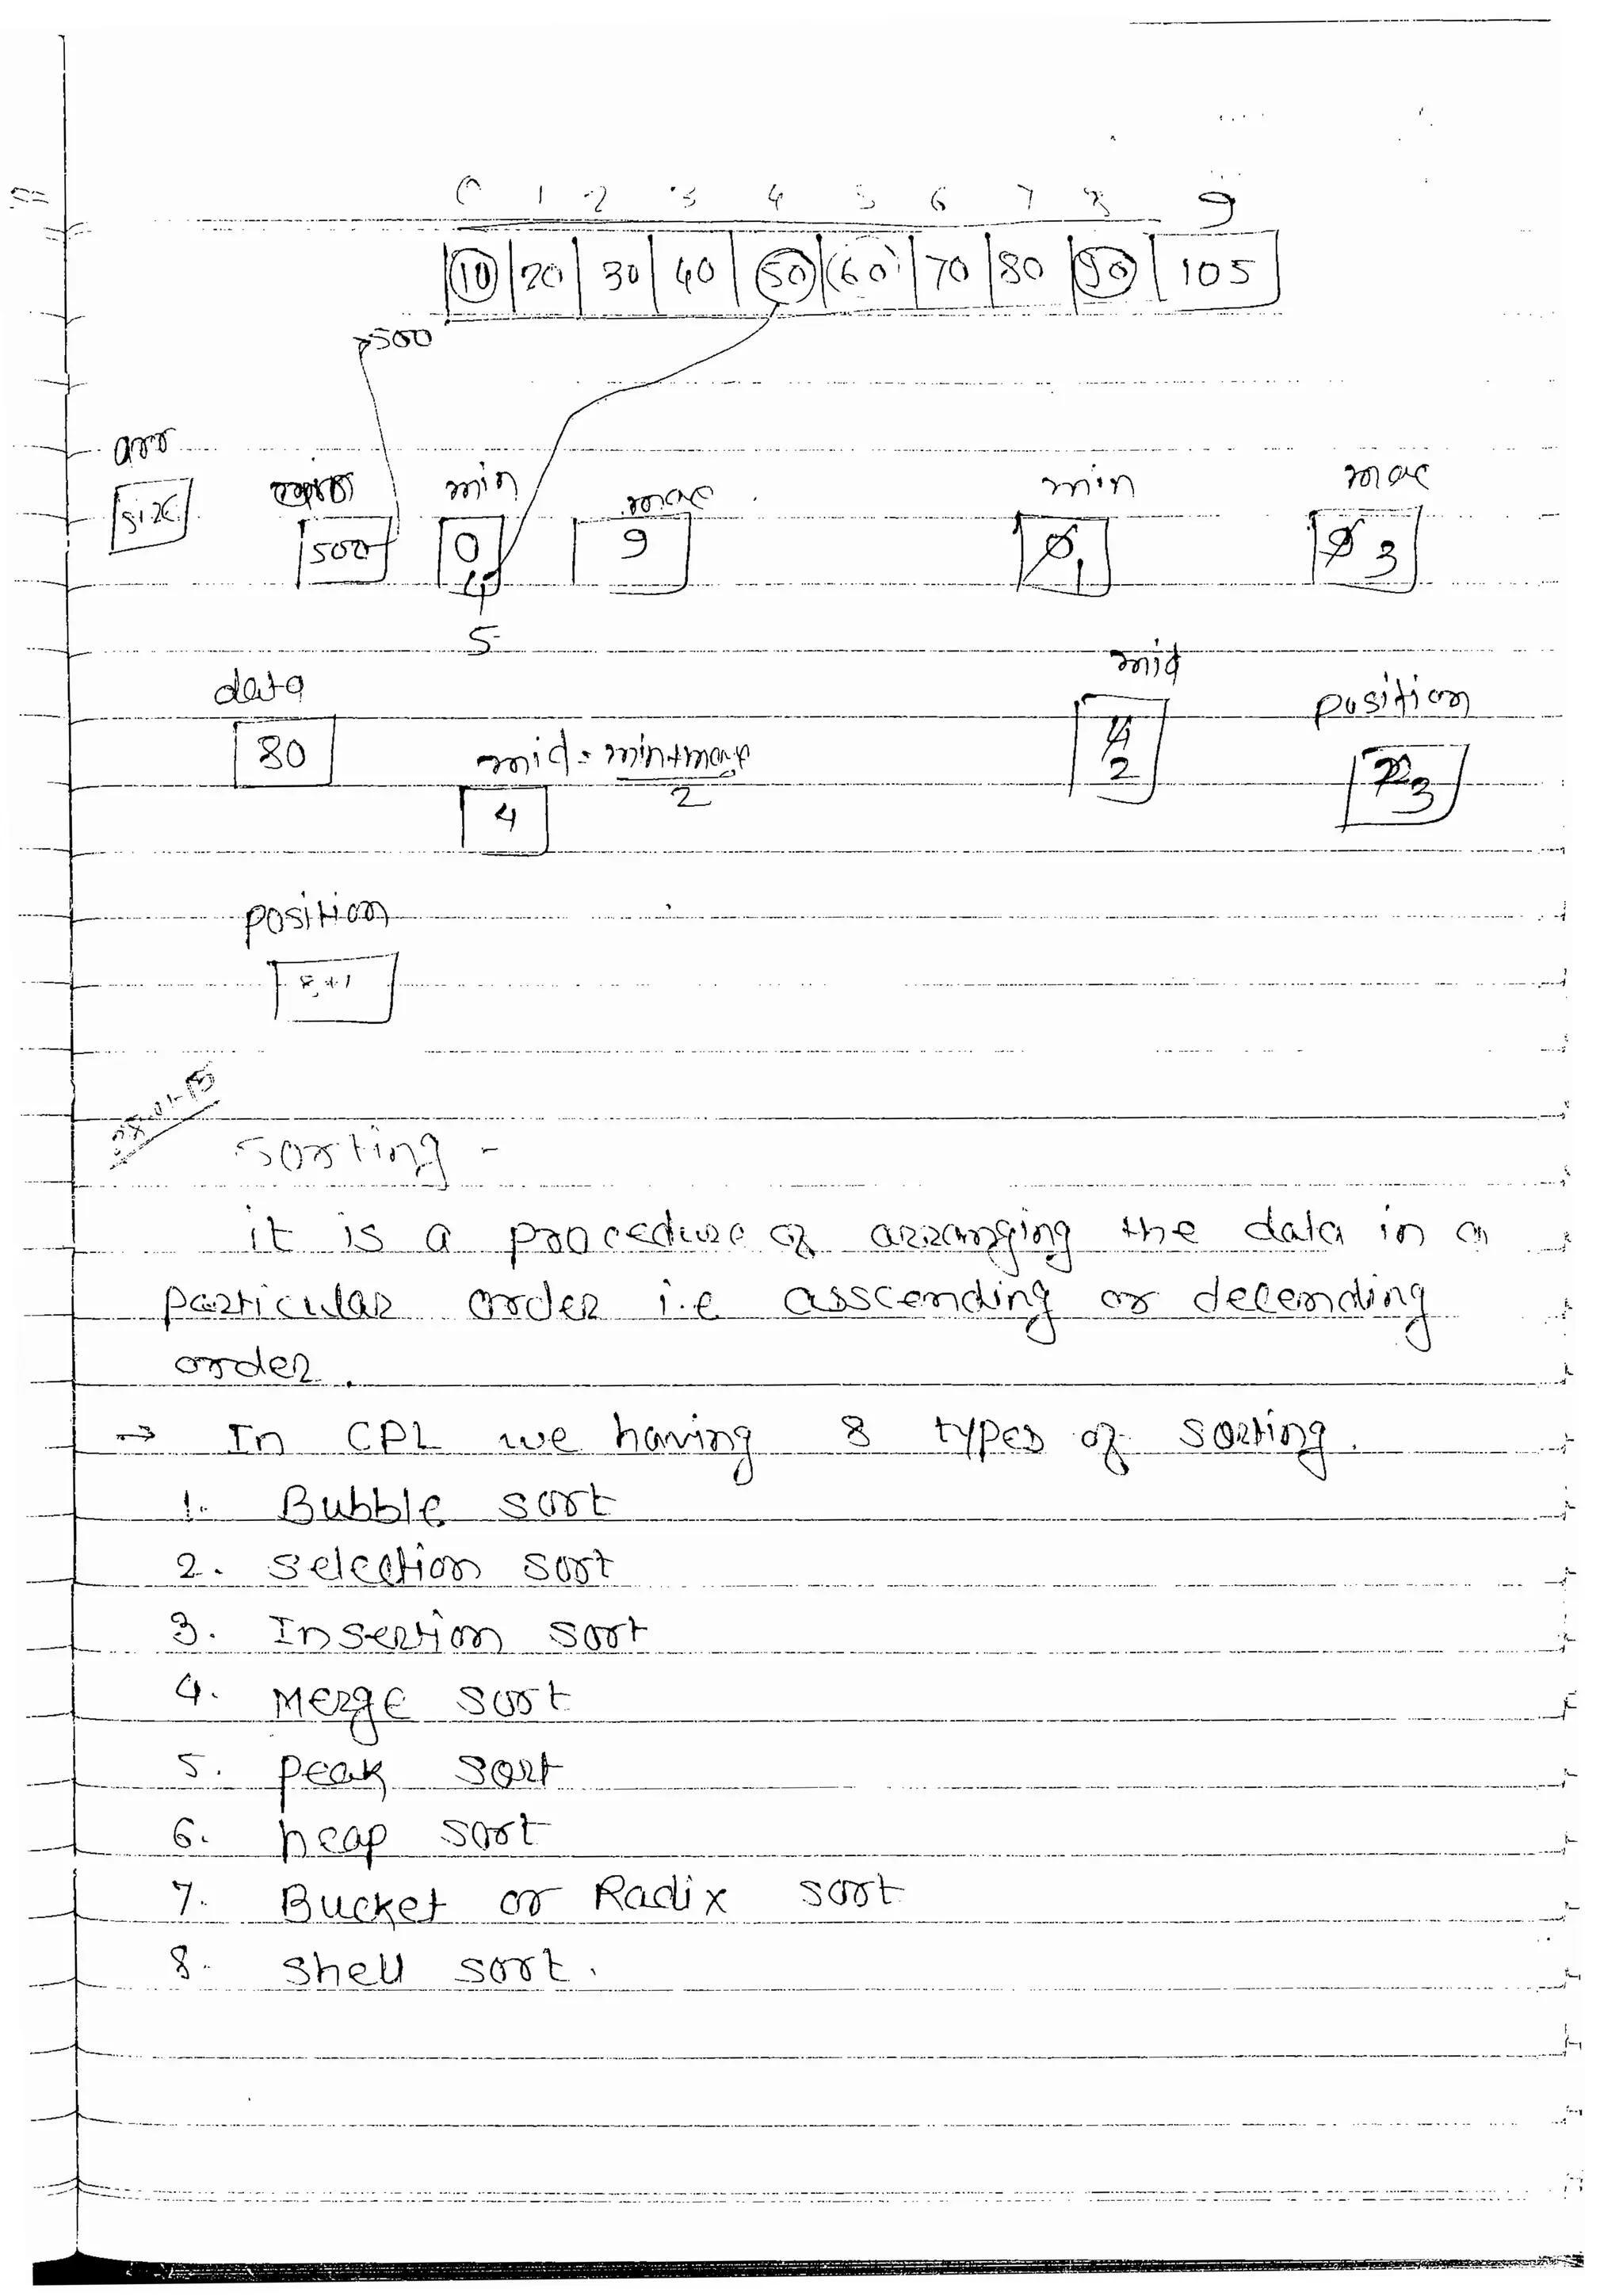 0 1 2 3 4 5 6 7 8 9
10 20 30 40 50 60 70 80 90 105
500
arr
size
500
min
0
4
5
max
9
min
0 1
max
9 3
data
80
mid = min+max
2
4
mid
4
2
position
3
position
sorting -
it is a procedure of arranging the data in a
particular order i.e asscending or decending
order.
→ In CPL we having 8 types of sorting.
1. Bubble sort
2. selection sort
3. Insertion sort
4. Merge sort
5. peak sort
6. heap sort
7. Bucket or Radix sort
8. shell sort.